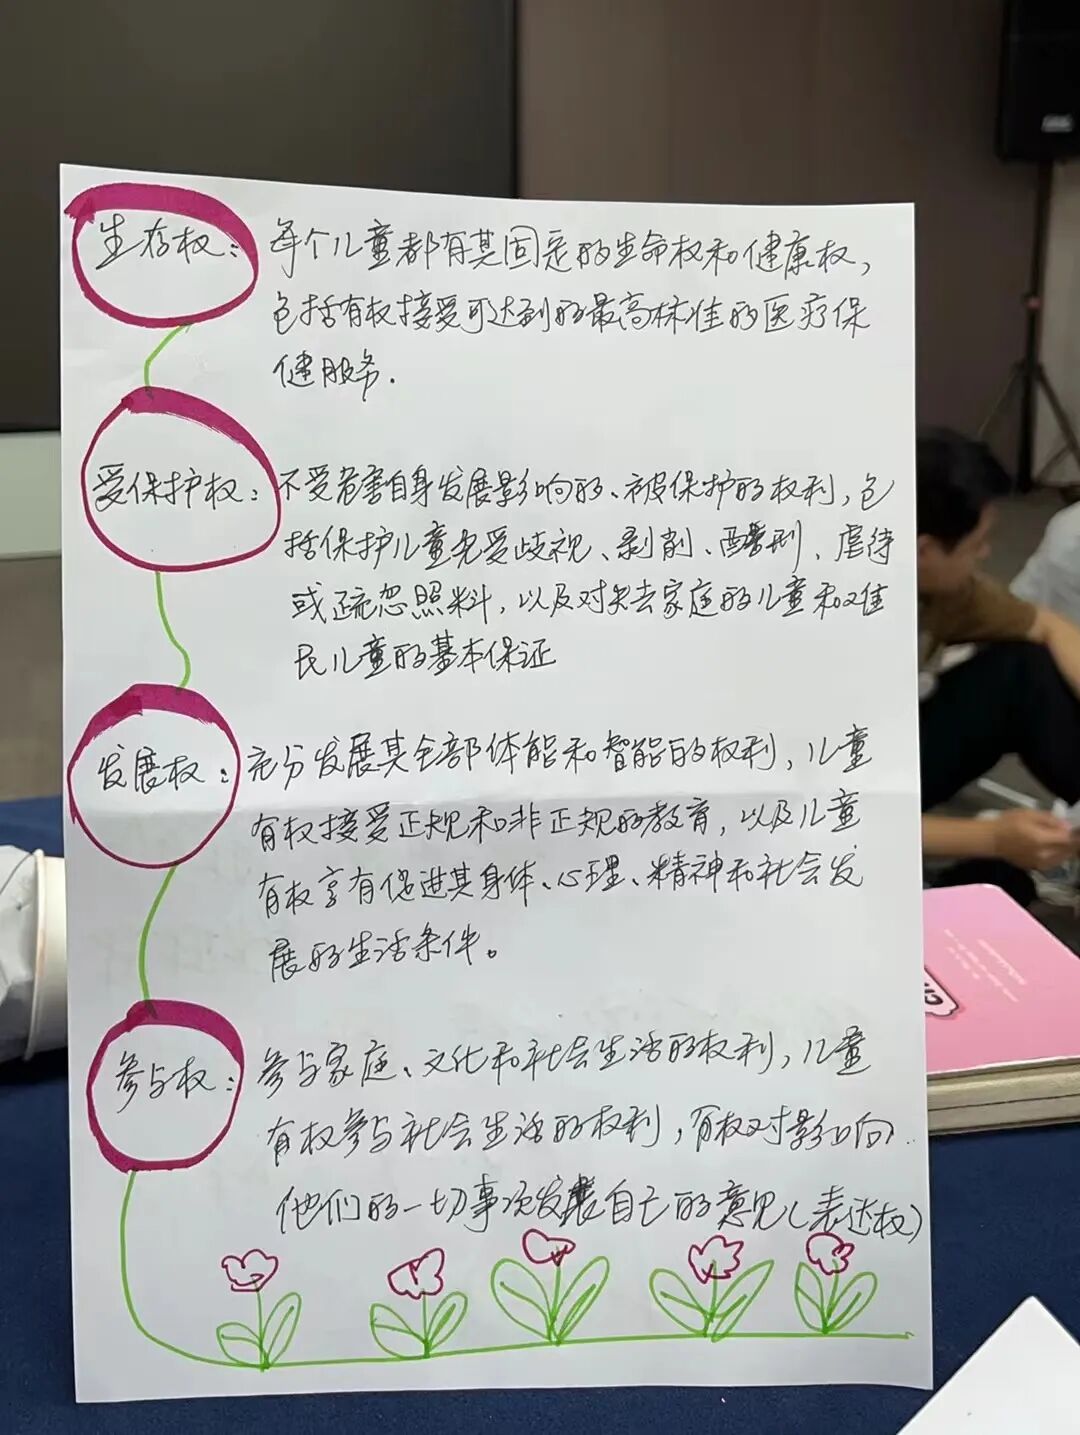 生存权：每个儿童都有其固定的生命权和健康权，
包括有权接受可达到的最高标准的医疗保
健服务.
受保护权：不受危害自身发展影响的、被保护的权利，包
括保护儿童免受歧视、剥削、酷刑、虐待
或疏忽照料，以及对失去家庭的儿童和难
民儿童的基本保证
发展权：充分发展其全部体能和智能的权利，儿童
有权接受正规和非正规的教育，以及儿童
有权享有促进其身体、心理、精神和社会发
展的生活条件。
参与权：参与家庭、文化和社会生活的权利，儿童
有权参与社会生活的权利，有权对影响
他们的一切事项发表自己的意见（表达权）